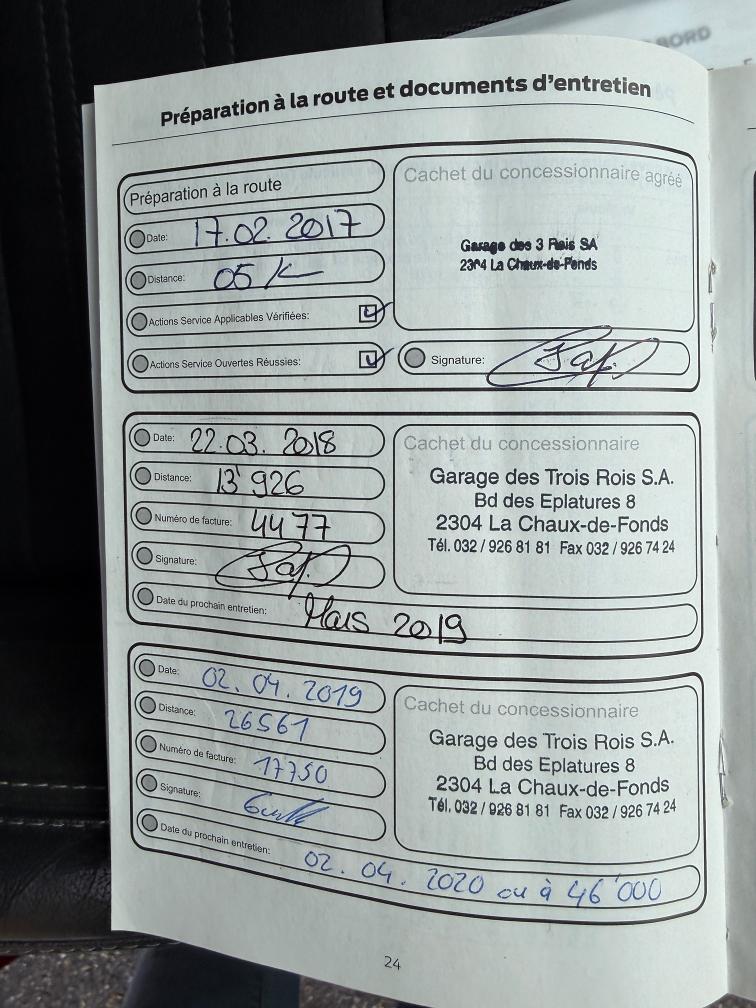 BORD
Préparation à la route et documents d'entretien
Préparation à la route
Date: 17.02.2017
Distance: 05 K
Actions Service Applicables Vérifiées:
Actions Service Ouvertes Réussies:
Cachet du concessionnaire agréé
Garage des 3 Rois SA
2304 La Chaux-de-Fonds
Signature:
Date: 22.03.2018
Distance: 13'926
Numéro de facture: 4477
Signature:
Date du prochain entretien: Mars 2019
Cachet du concessionnaire
Garage des Trois Rois S.A.
Bd des Eplatures 8
2304 La Chaux-de-Fonds
Tél. 032 / 926 81 81 Fax 032 / 926 74 24
Date: 02.04.2019
Distance: 26561
Numéro de facture: 17750
Signature:
Date du prochain entretien: 02.04.2020 ou à 46'000
Cachet du concessionnaire
Garage des Trois Rois S.A.
Bd des Eplatures 8
2304 La Chaux-de-Fonds
Tél. 032 / 926 81 81 Fax 032 / 926 74 24
24